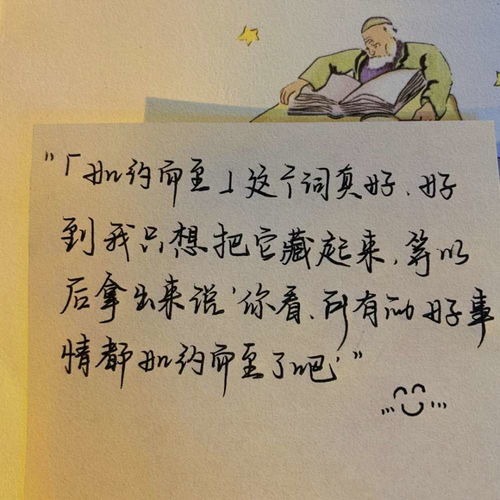 "「如约而至」这个词真好、好
到我只想把它藏起来，等以
后拿出来说'你看、所有的好事
情都如约而至了吧'"